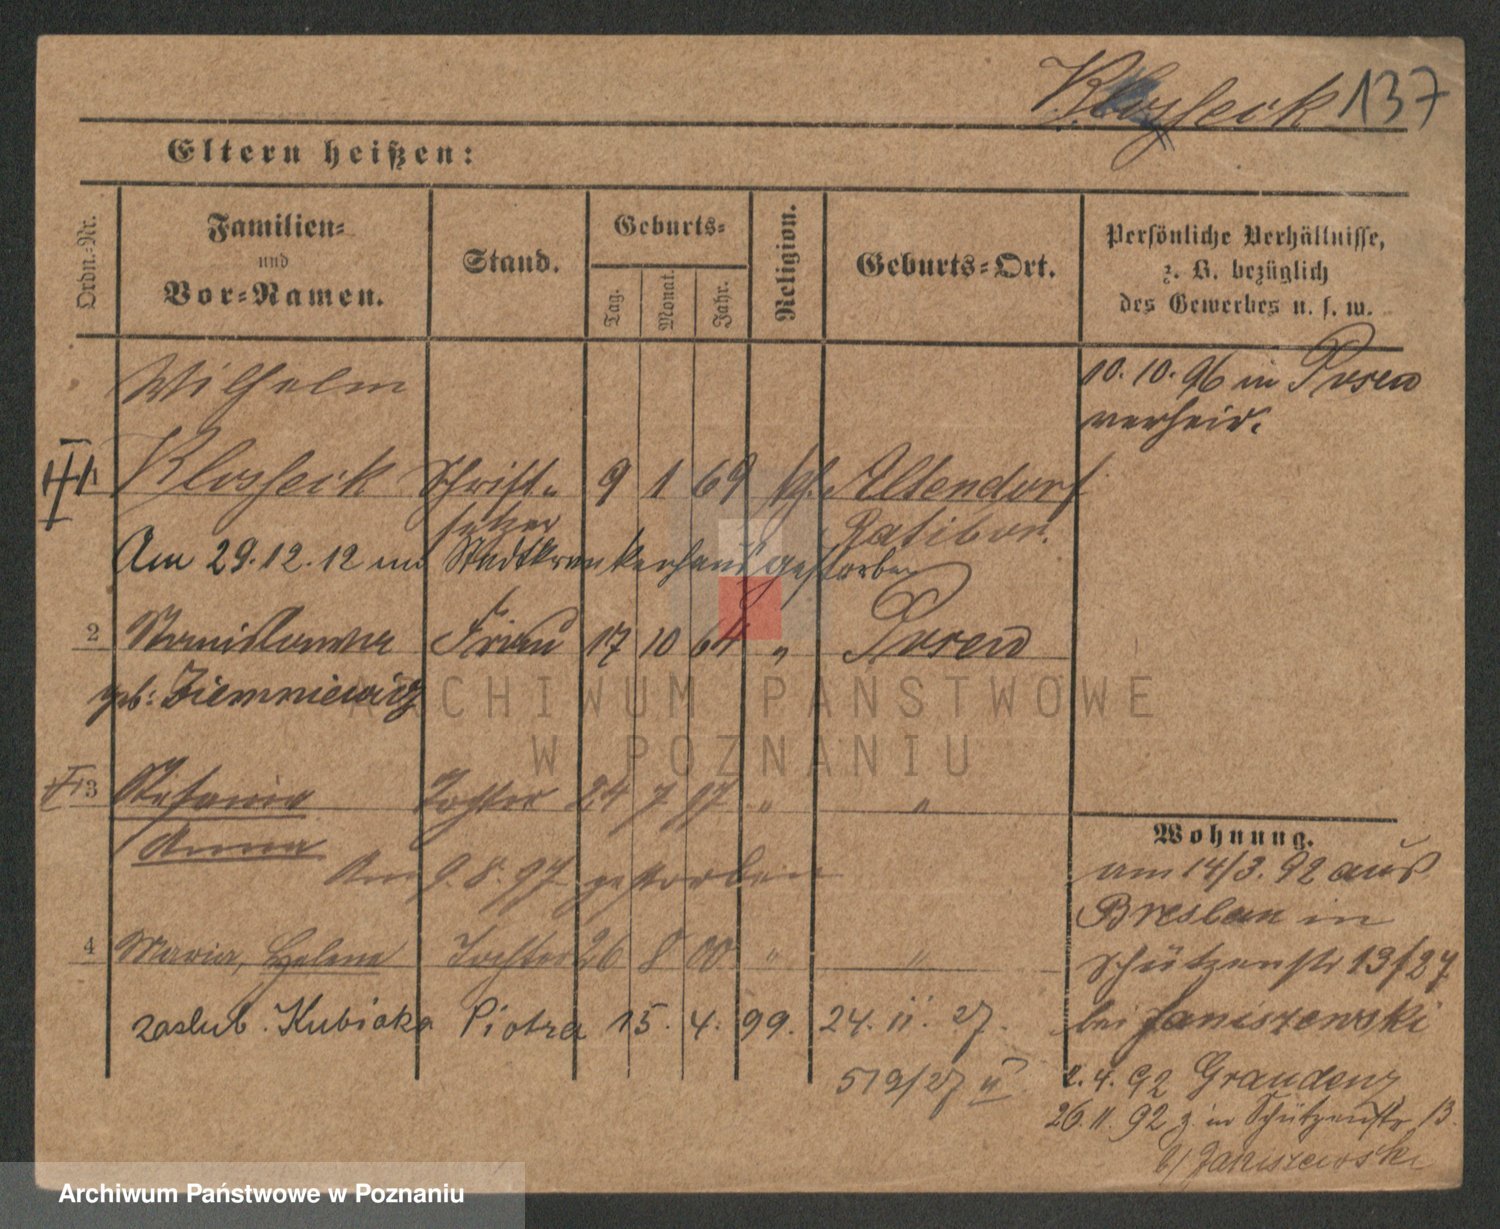 Kloseck 137
Eltern heißen:
Ordn.-Nr.
Familien-
und
Vor-Namen.
Stand.
Geburts-
Tag.
Monat.
Jahr.
Religion.
Geburts-Ort.
Persönliche Verhältnisse,
z. B. bezüglich
des Gewerbes u. s. w.
Wilhelm
10. 10. 96 in Posen
verheir.
1 Kloseck Schrift- 9 1 69 Altendorf
setzer Ratibor.
Am 29.12.12 im Stadtkrankenhaus gestorben
2 Stanislawa Frau 17 10 64 " Posen
geb: Ziemniewicz
3 Stefania Tochter 24 7 97 " "
Anna
Am 9. 8. 97 gestorben
4 Maria, Helene Tochter 26 8 00 " "
zaślub. Kubiaka Piotra 15. 4. 99. 24. II. 27.
519/27 II
Wohnung.
am 14/3. 92 aus
Breslau in
Schützenstr 13/27
bei Janiszewski
2. 4. 92 Graudenz
26. 11. 92 z. in Schützenstr. 13.
b/ Janiszewski
ARCHIWUM PAŃSTWOWE
W POZNANIU
Archiwum Państwowe w Poznaniu